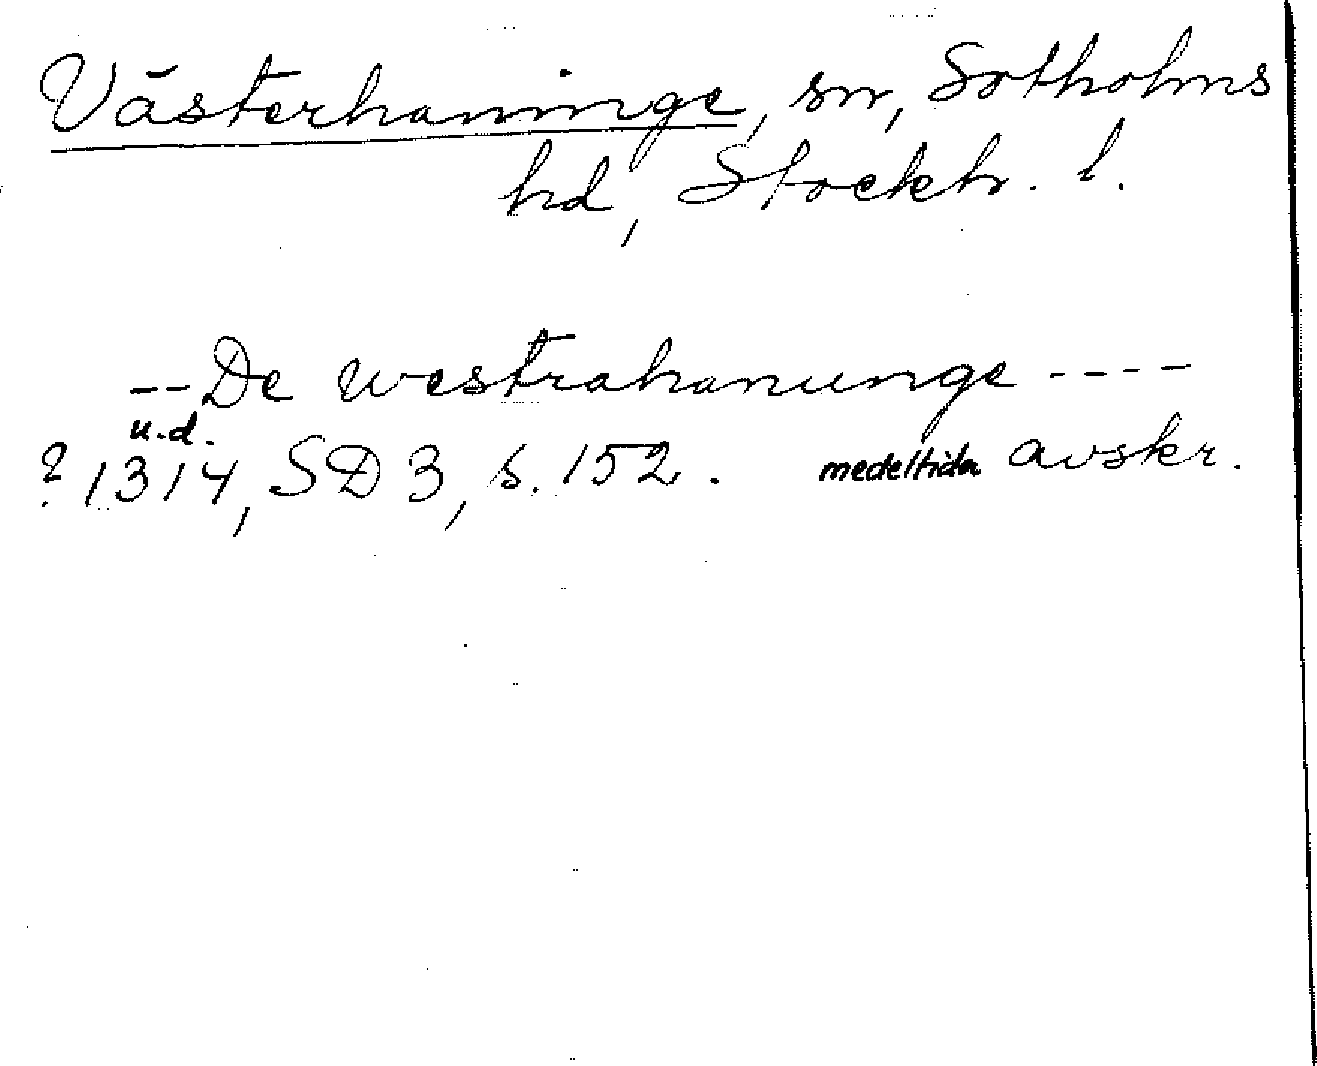 Västerhaninge, sn, Sotholms
hd, Stockh. l.
-- De westrahanunge ----
u.d.
? 1314, SD 3, s. 152. medeltida avskr.